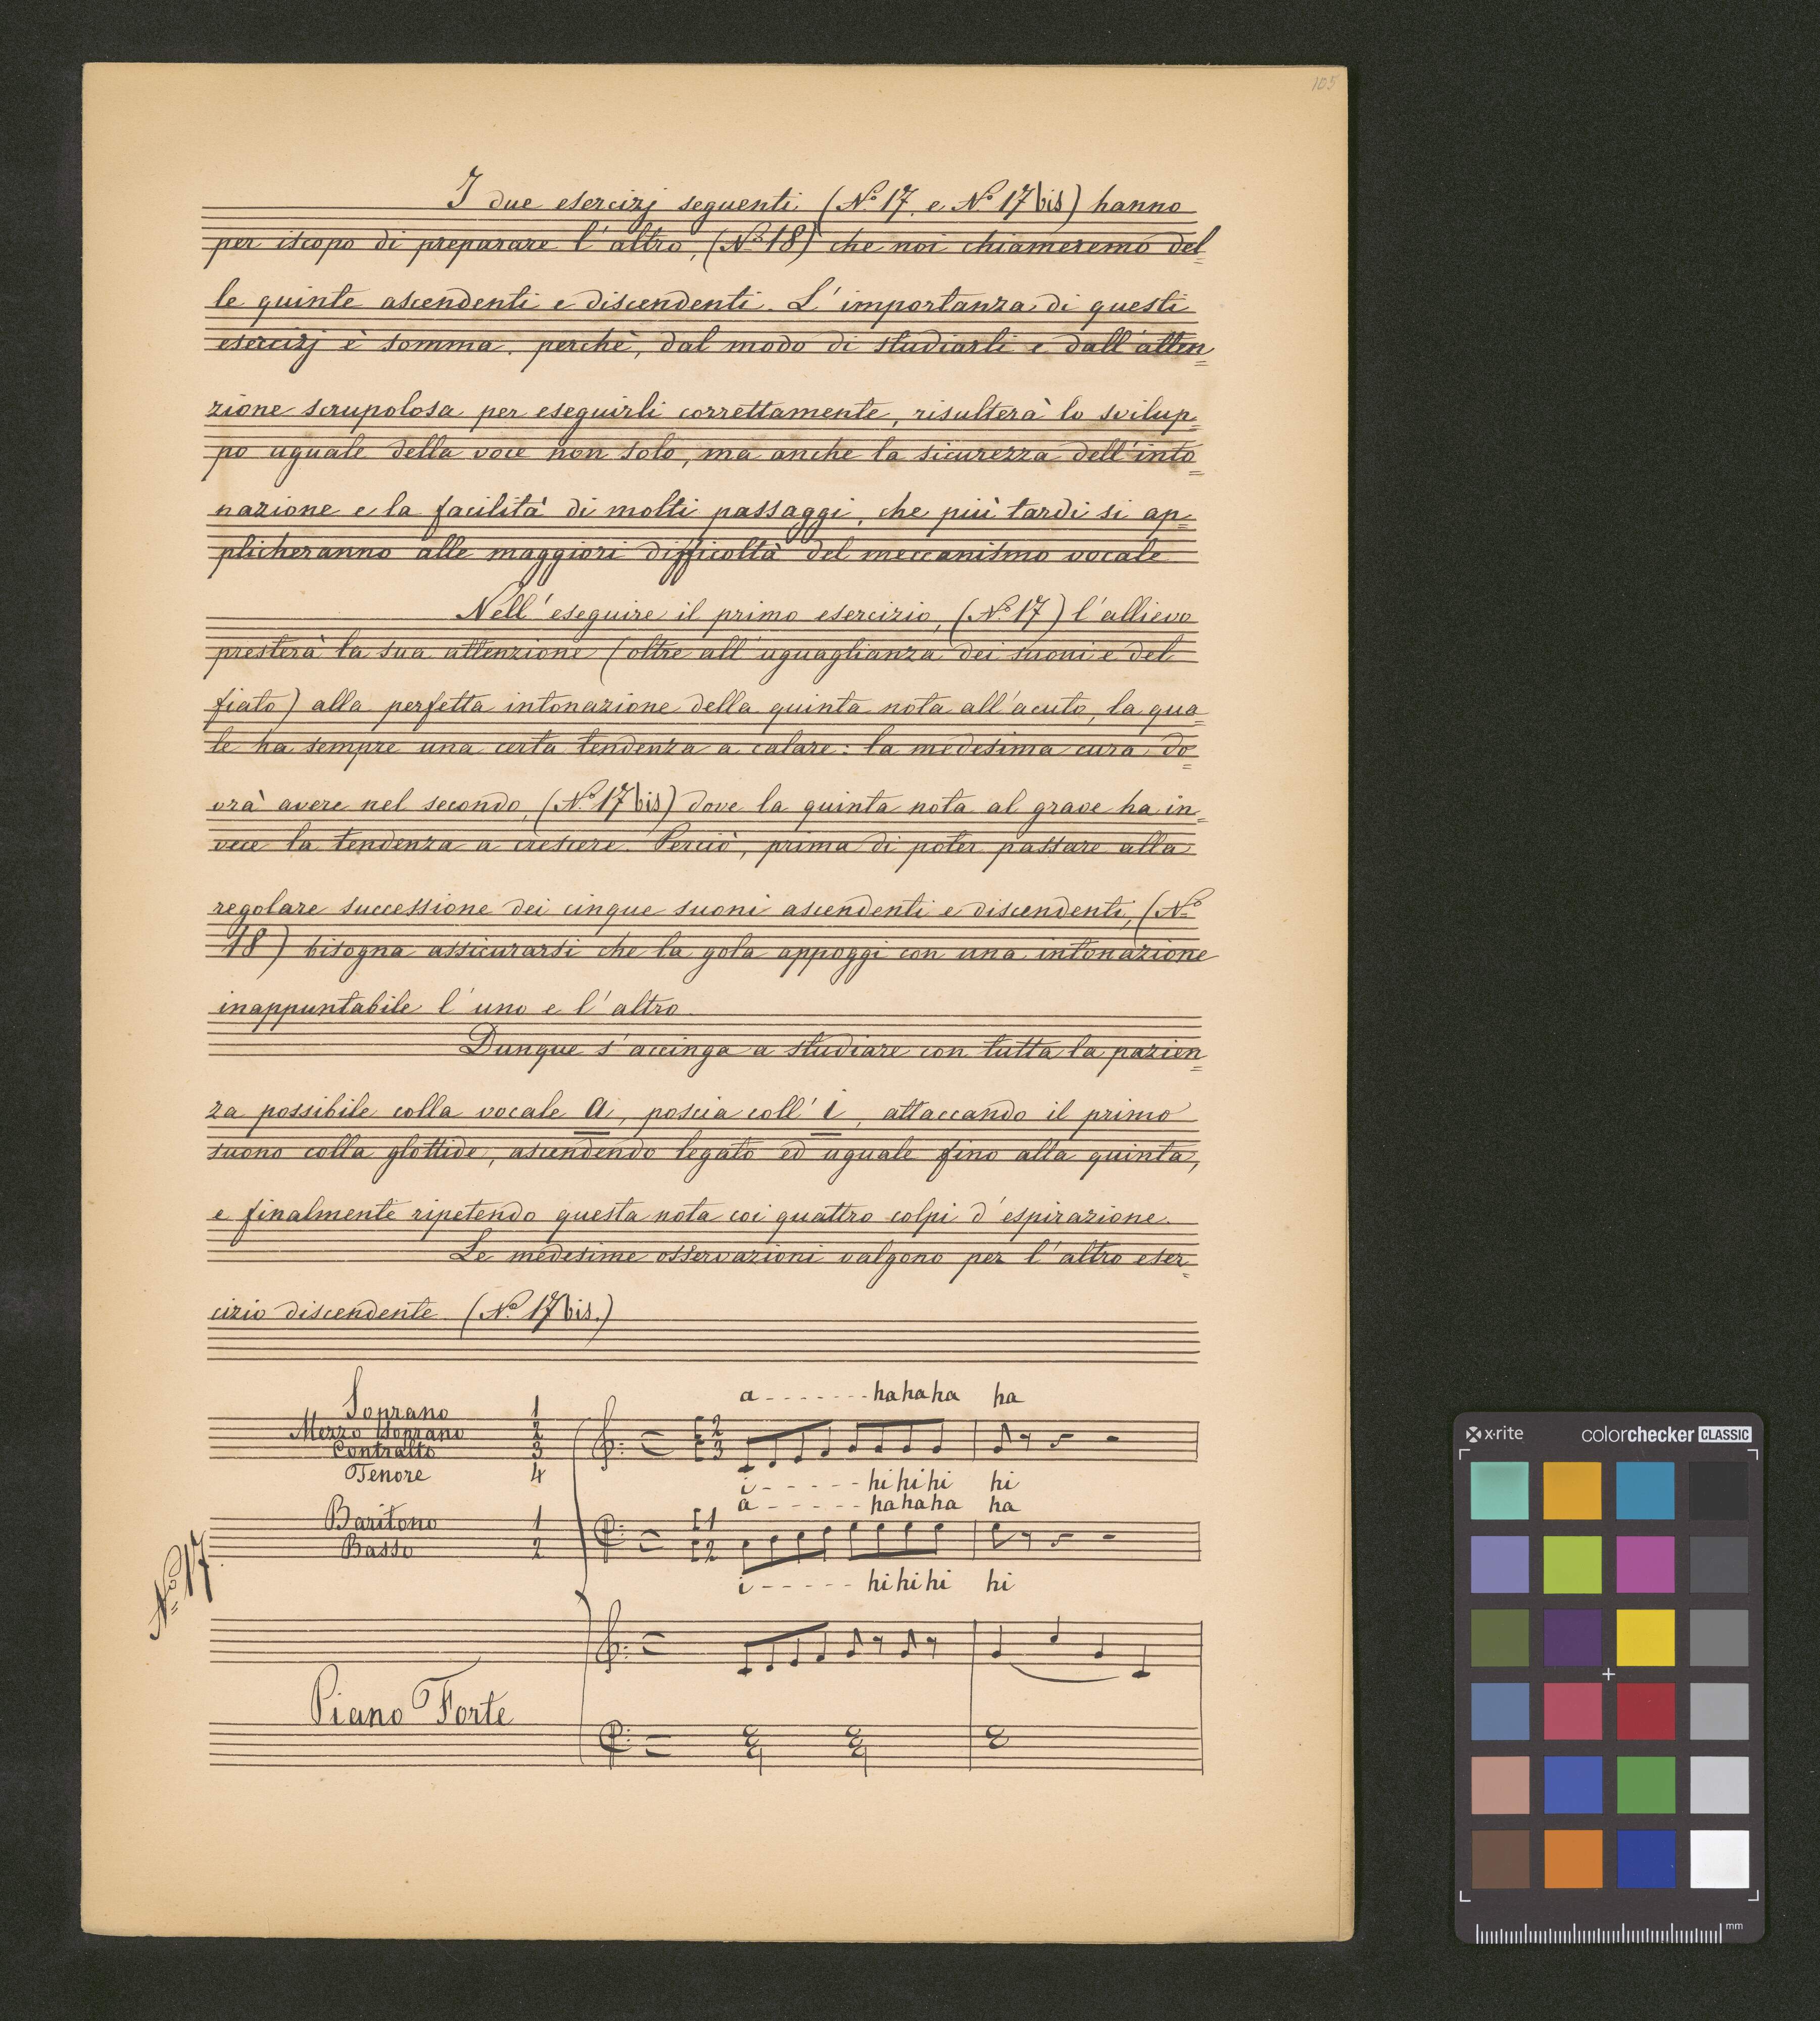 105
I due esercizj seguenti (Nº 17. e Nº 17 bis) hanno
per iscopo di preparare l'altro, (Nº 18) che noi chiameremo del=
le quinte ascendenti e discendenti. L'importanza di questi
esercizj è somma. perchè, dal modo di studiarli e dall'atten=
zione scrupolosa per eseguirli correttamente, risulterà lo svilup=
po uguale della voce non solo, ma anche la sicurezza dell'into=
nazione e la facilità di molti passaggi, che più tardi si ap=
plicheranno alle maggiori difficoltà del meccanismo vocale.
Nell'eseguire il primo esercizio, (Nº 17) l'allievo
presterà la sua attenzione (oltre all'uguaglianza dei suoni e del
fiato) alla perfetta intonazione della quinta nota all'acuto, la qua=
le ha sempre una certa tendenza a calare: la medesima cura do=
vrà avere nel secondo, (Nº 17 bis) dove la quinta nota al grave ha in=
vece la tendenza a crescere. Perciò, prima di poter passare alla
regolare successione dei cinque suoni ascendenti e discendenti, (Nº
18) bisogna assicurarsi che la gola appoggi con una intonazione
inappuntabile l'uno e l'altro.
Dunque s'accinga a studiare con tutta la pazien=
za possibile colla vocale a, poscia coll'i, attaccando il primo
suono colla glottide, ascendendo legato ed uguale fino alla quinta,
e finalmente ripetendo questa nota coi quattro colpi d'espirazione.
Le medesime osservazioni valgono per l'altro eser=
cizio discendente. (Nº 17 bis.)
a - - - - - - - ha ha ha ha
Soprano 1
Mezzo Soprano 2
Contralto 3
Tenore 4
2
3
i - - - - - - - hi hi hi hi
a - - - - - - - ha ha ha ha
Baritono 1
Basso 2
1
2
i - - - - - - hi hi hi hi
Nº 17.
Piano Forte
x-rite colorchecker CLASSIC
mm